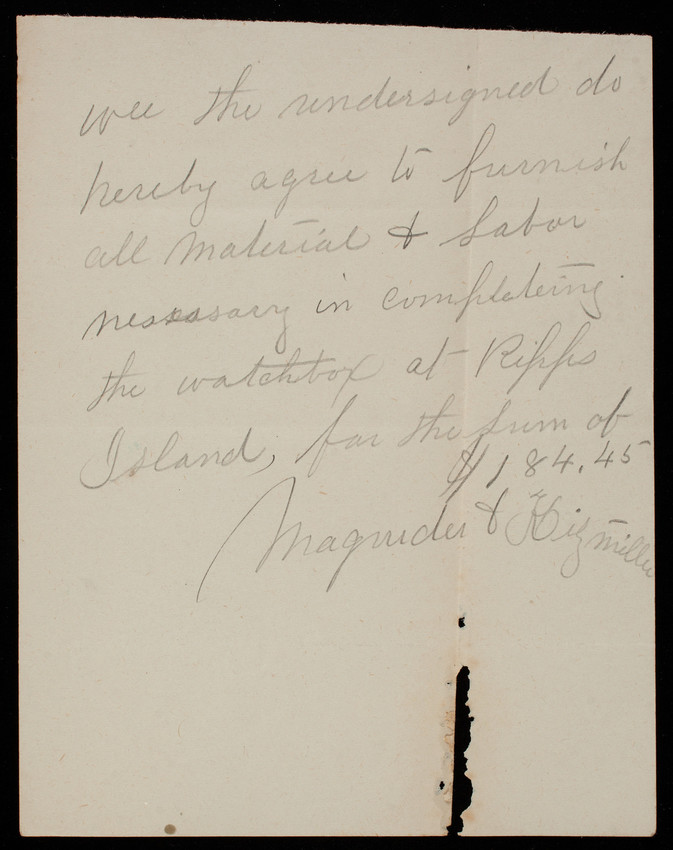 wee the undersigned do
hereby agree to furnish
all Material & Labor
nessasary in completeing
the watchbox at Ripps
Island, for the Sum of
$184.45
Magruder & Kizmiller